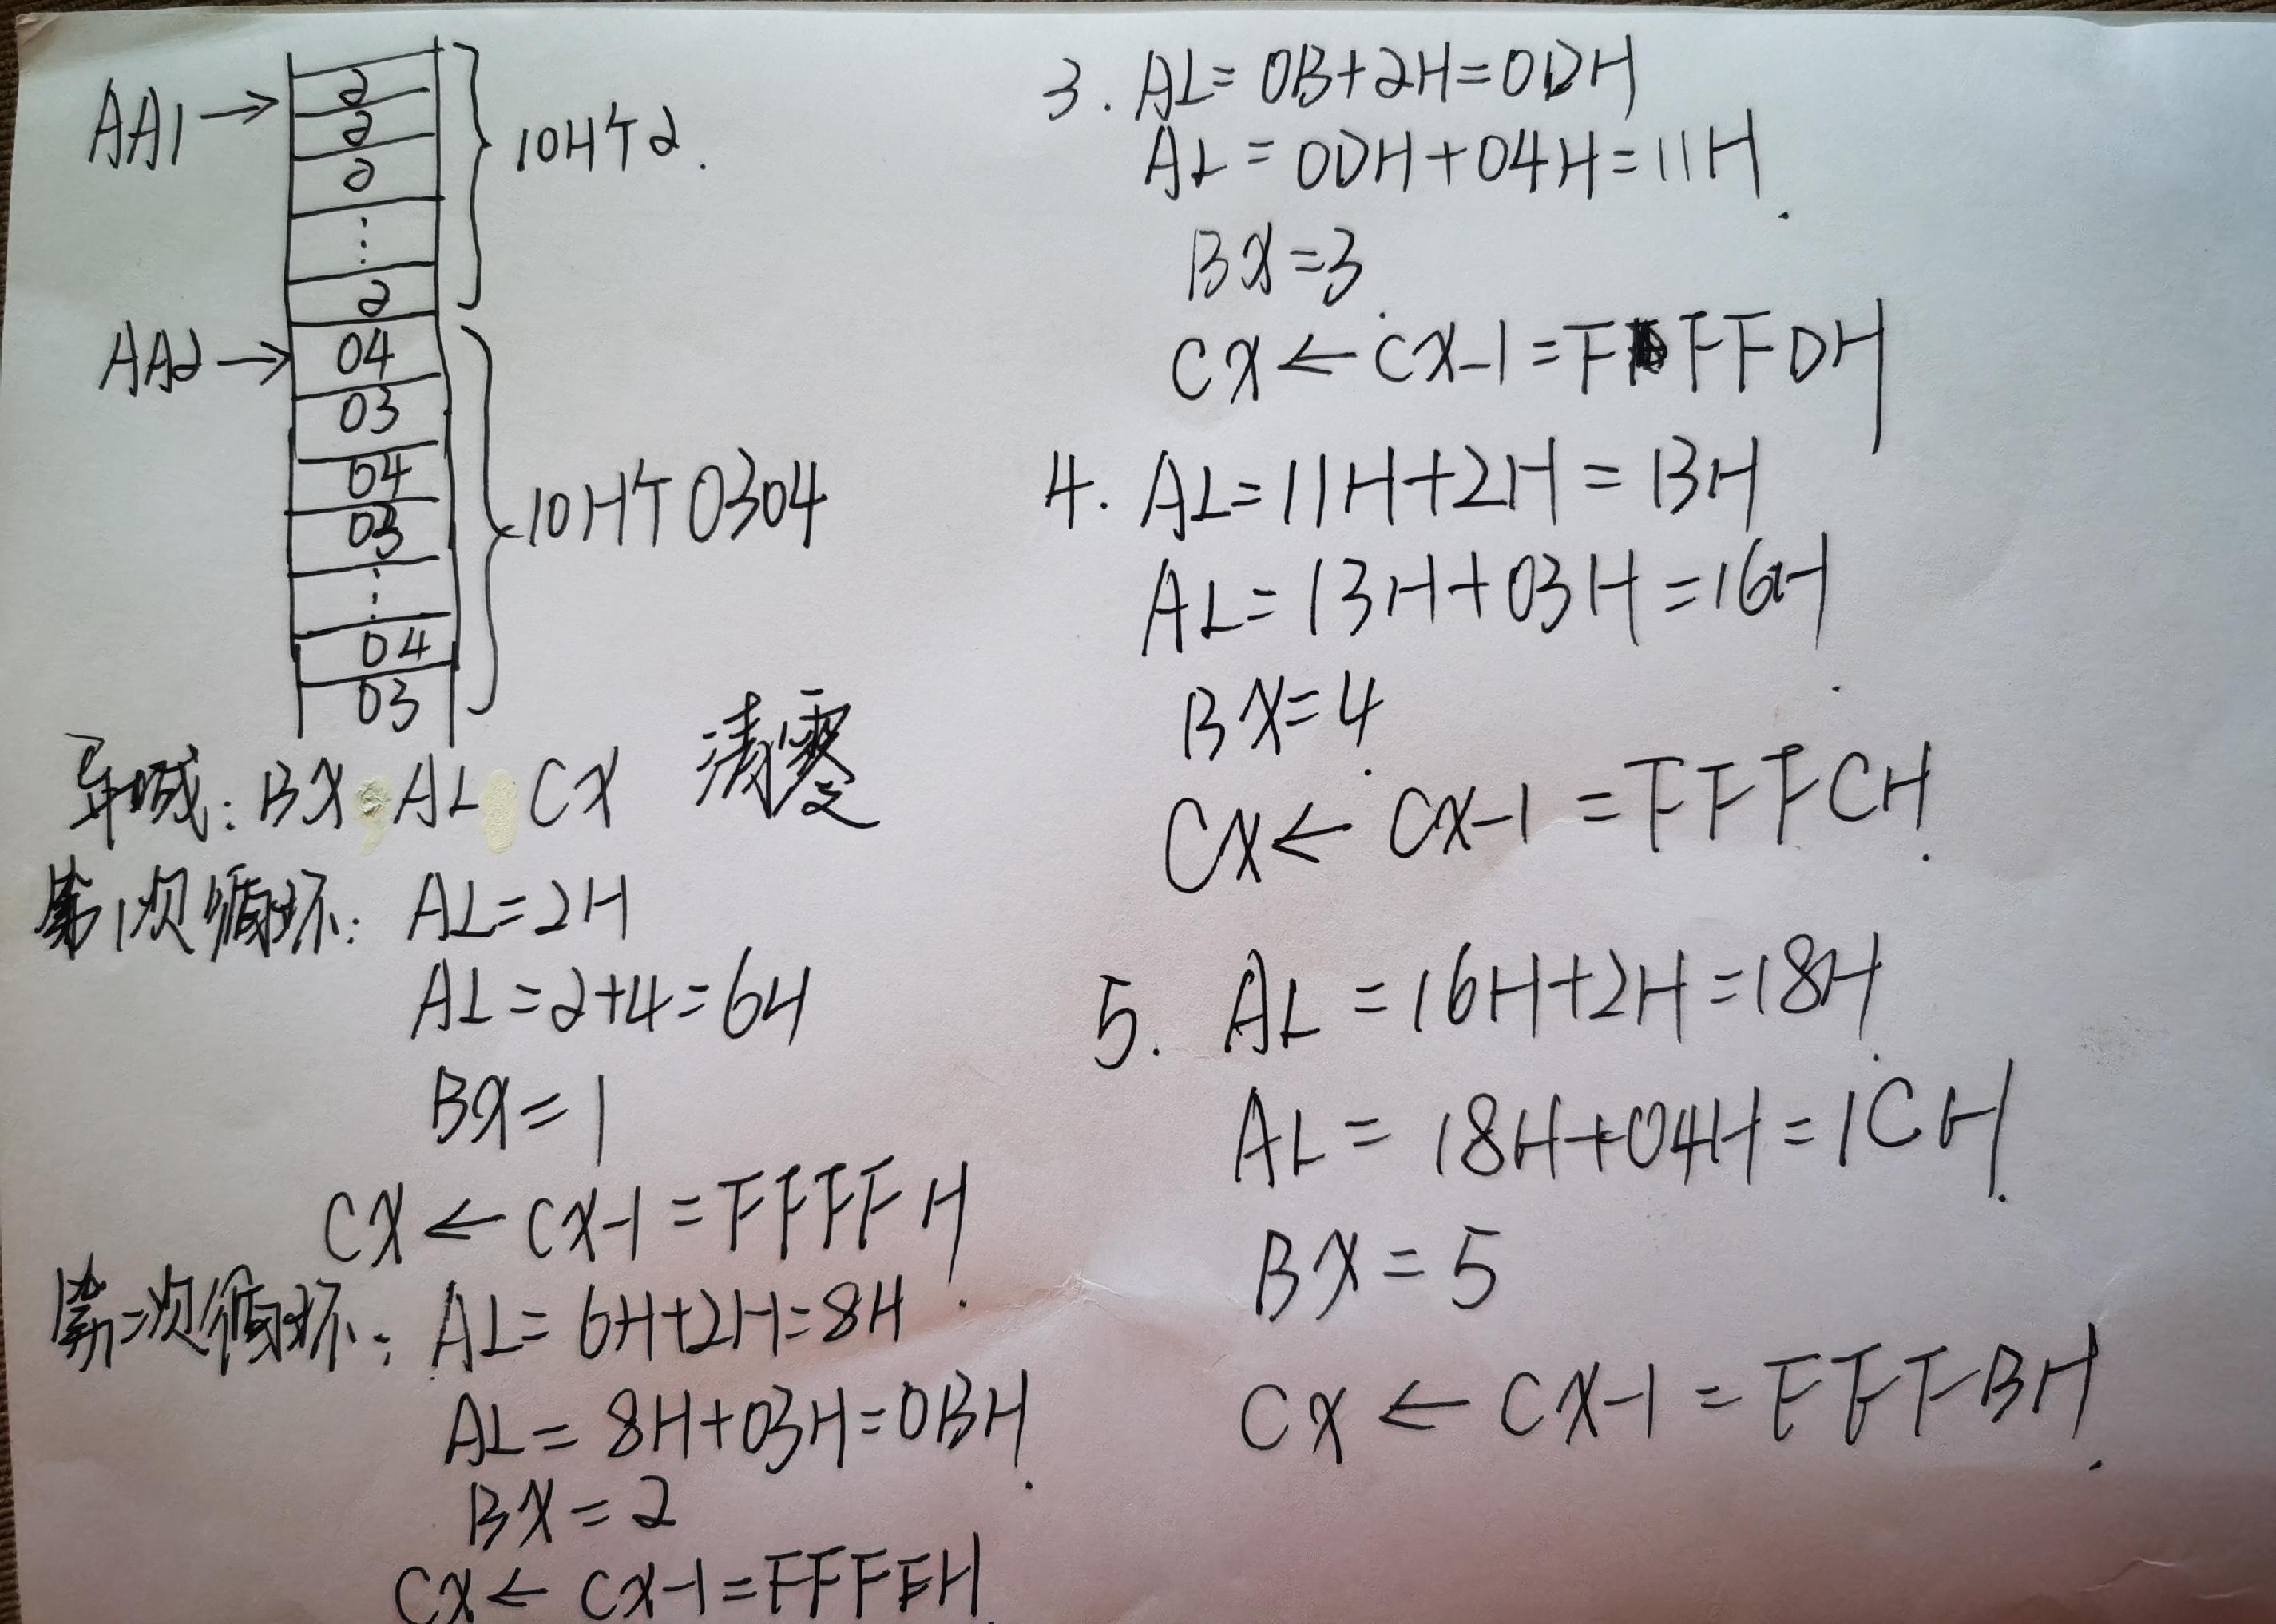 AA1→
2
2
2
⋮
2
10H个2.
AA2→
04
03
04
03
⋮
04
03
10H个0304
异或: BX, AL, CX 清零
第1次循环: AL=2H
AL=2+4=6H
BX=1
CX←CX-1=FFFFH
第二次循环: AL=6H+2H=8H.
AL=8H+03H=0BH.
BX=2
CX←CX-1=FFFEH.
3. AL=0B+2H=0DH
AL=0DH+04H=11H.
BX=3.
CX←CX-1=FFFDH
4. AL=11H+2H=13H
AL=13H+03H=16H.
BX=4.
CX←CX-1=FFFCH.
5. AL=16H+2H=18H.
AL=18H+04H=1CH.
BX=5
CX←CX-1=FFFBH.